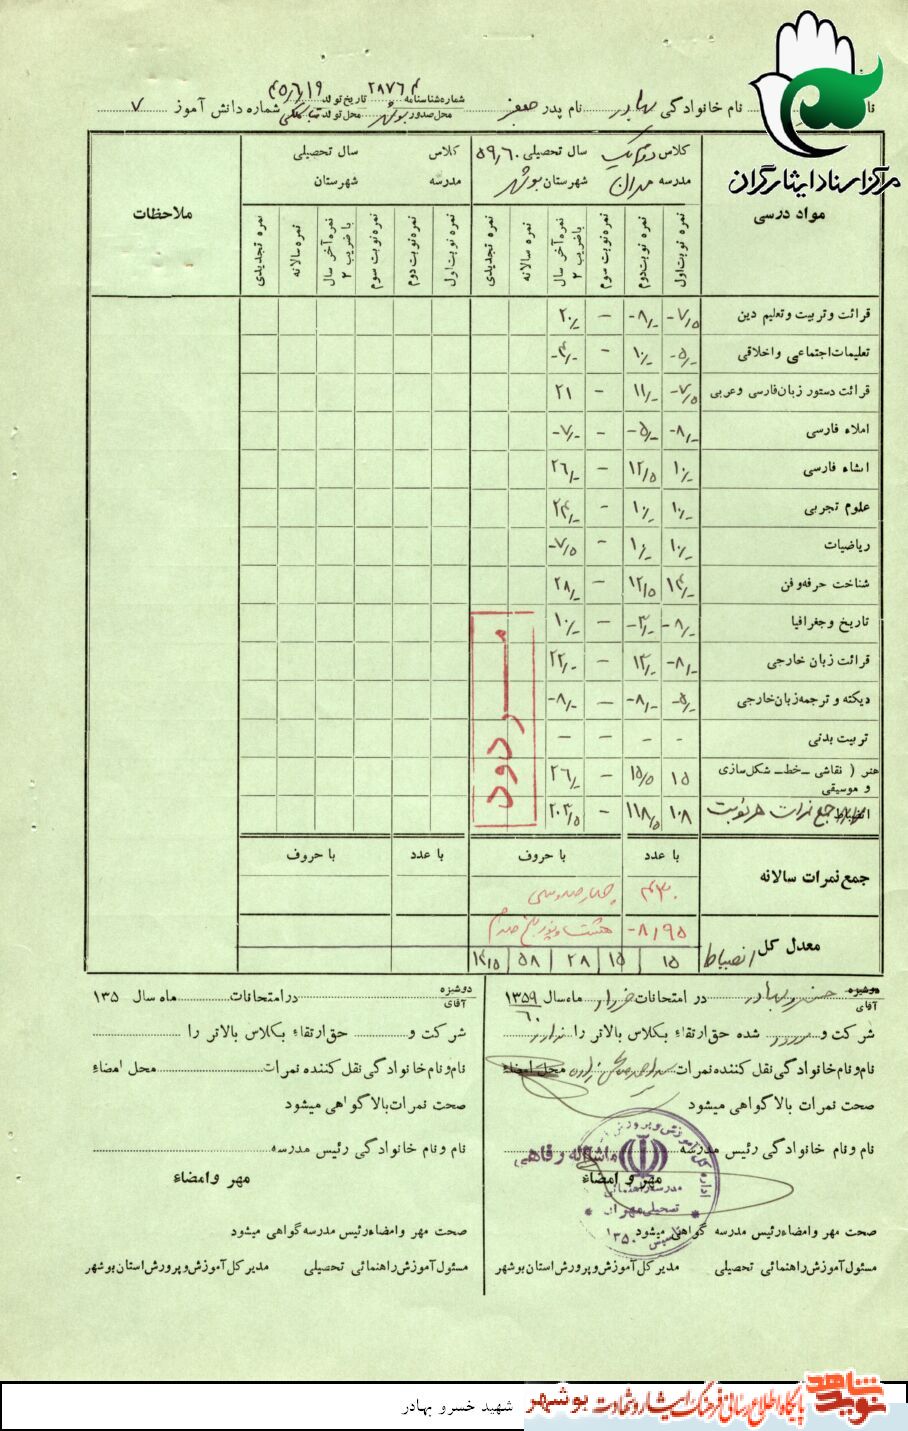 مرکز اسناد ایثارگران
نام خانوادگی بهادر نام پدر جعفر شماره شناسنامه ۲۸۷۶۳ تاریخ تولد ۴۵/۶/۱۹ شماره دانش آموز ۷
محل صدور بوشهر محل تولد
کلاس دوم یک سال تحصیلی ۵۹/۶۰ کلاس سال تحصیلی
مدرسه مهران شهرستان بوشهر مدرسه شهرستان
مواد درسی نمره نوبت اول نمره نوبت دوم نمره نوبت سوم نمره آخر سال با ضریب ۲ نمره سالانه نمره تجدیدی نمره نوبت اول نمره نوبت دوم نمره نوبت سوم نمره آخر سال با ضریب ۲ نمره سالانه نمره تجدیدی ملاحظات
قرائت و تربیت و تعلیم دین ۷/۵- ۸/- - ۲۰/-
تعلیمات اجتماعی و اخلاقی ۵/- ۱۰/- - ۴/-
قرائت دستور زبان فارسی و عربی ۷/۵- ۱۱/- - ۲۱
املاء فارسی ۸/- ۵/- - ۷/-
انشاء فارسی ۱۰/- ۱۲/۵ - ۲۶/-
علوم تجربی ۱۰/- ۱۰/- - ۲۴/-
ریاضیات ۱۰/- ۱۰/- - ۷/۵-
شناخت حرفه و فن ۱۴/- ۱۲/۵ - ۲۸/-
تاریخ و جغرافیا ۸/- ۳/- - ۱۰/-
قرائت زبان خارجی ۸/- ۱۳/- - ۲۲/-
دیکته و ترجمه زبان خارجی ۵/- ۸/- - ۸/-
تربیت بدنی - - - -
هنر ( نقاشی - خط - شکل سازی و موسیقی ۱۵ ۱۵/۵ - ۲۶/-
جمع نمرات هر نوبت ۱۰۸ ۱۱۸/۵ - ۲۰۳/۵
مردود
با عدد با حروف با عدد با حروف
جمع نمرات سالانه ۴۳۰ چهارصد و سی
معدل کل ۸/۹۵- هشت و نود و پنج صدم
انضباط ۱۵ ۱۵ ۲۸ ۵۸ ۱۴/۵
دوشیزه
آقای خسرو بهادر در امتحانات خرداد ماه سال ۱۳۵۹
۶۰
شرکت و مردود شده حق ارتقاء بکلاس بالاتر را ندارد
نام و نام خانوادگی نقل کننده نمرات محل امضاء
صحت نمرات بالا گواهی میشود
نام و نام خانوادگی رئیس مدرسه ماشااله وقاهی
مهر و امضاء
اداره کل آموزش و پرورش
مدرسه راهنمائی
تحصیلی مهران
تأسیس ۱۳۵۰
صحت مهر و امضاء رئیس مدرسه گواهی میشود
مسئول آموزش راهنمائی تحصیلی مدیر کل آموزش و پرورش استان بوشهر
دوشیزه
آقای در امتحانات ماه سال ۱۳۵
شرکت و حق ارتقاء بکلاس بالاتر را
نام و نام خانوادگی نقل کننده نمرات محل امضاء
صحت نمرات بالا گواهی میشود
نام و نام خانوادگی رئیس مدرسه
مهر و امضاء
صحت مهر و امضاء رئیس مدرسه گواهی میشود
مسئول آموزش راهنمائی تحصیلی مدیر کل آموزش و پرورش استان بوشهر
نوید شاهد پایگاه اطلاع رسانی فرهنگ ایثار و شهادت بوشهر شهید خسرو بهادر